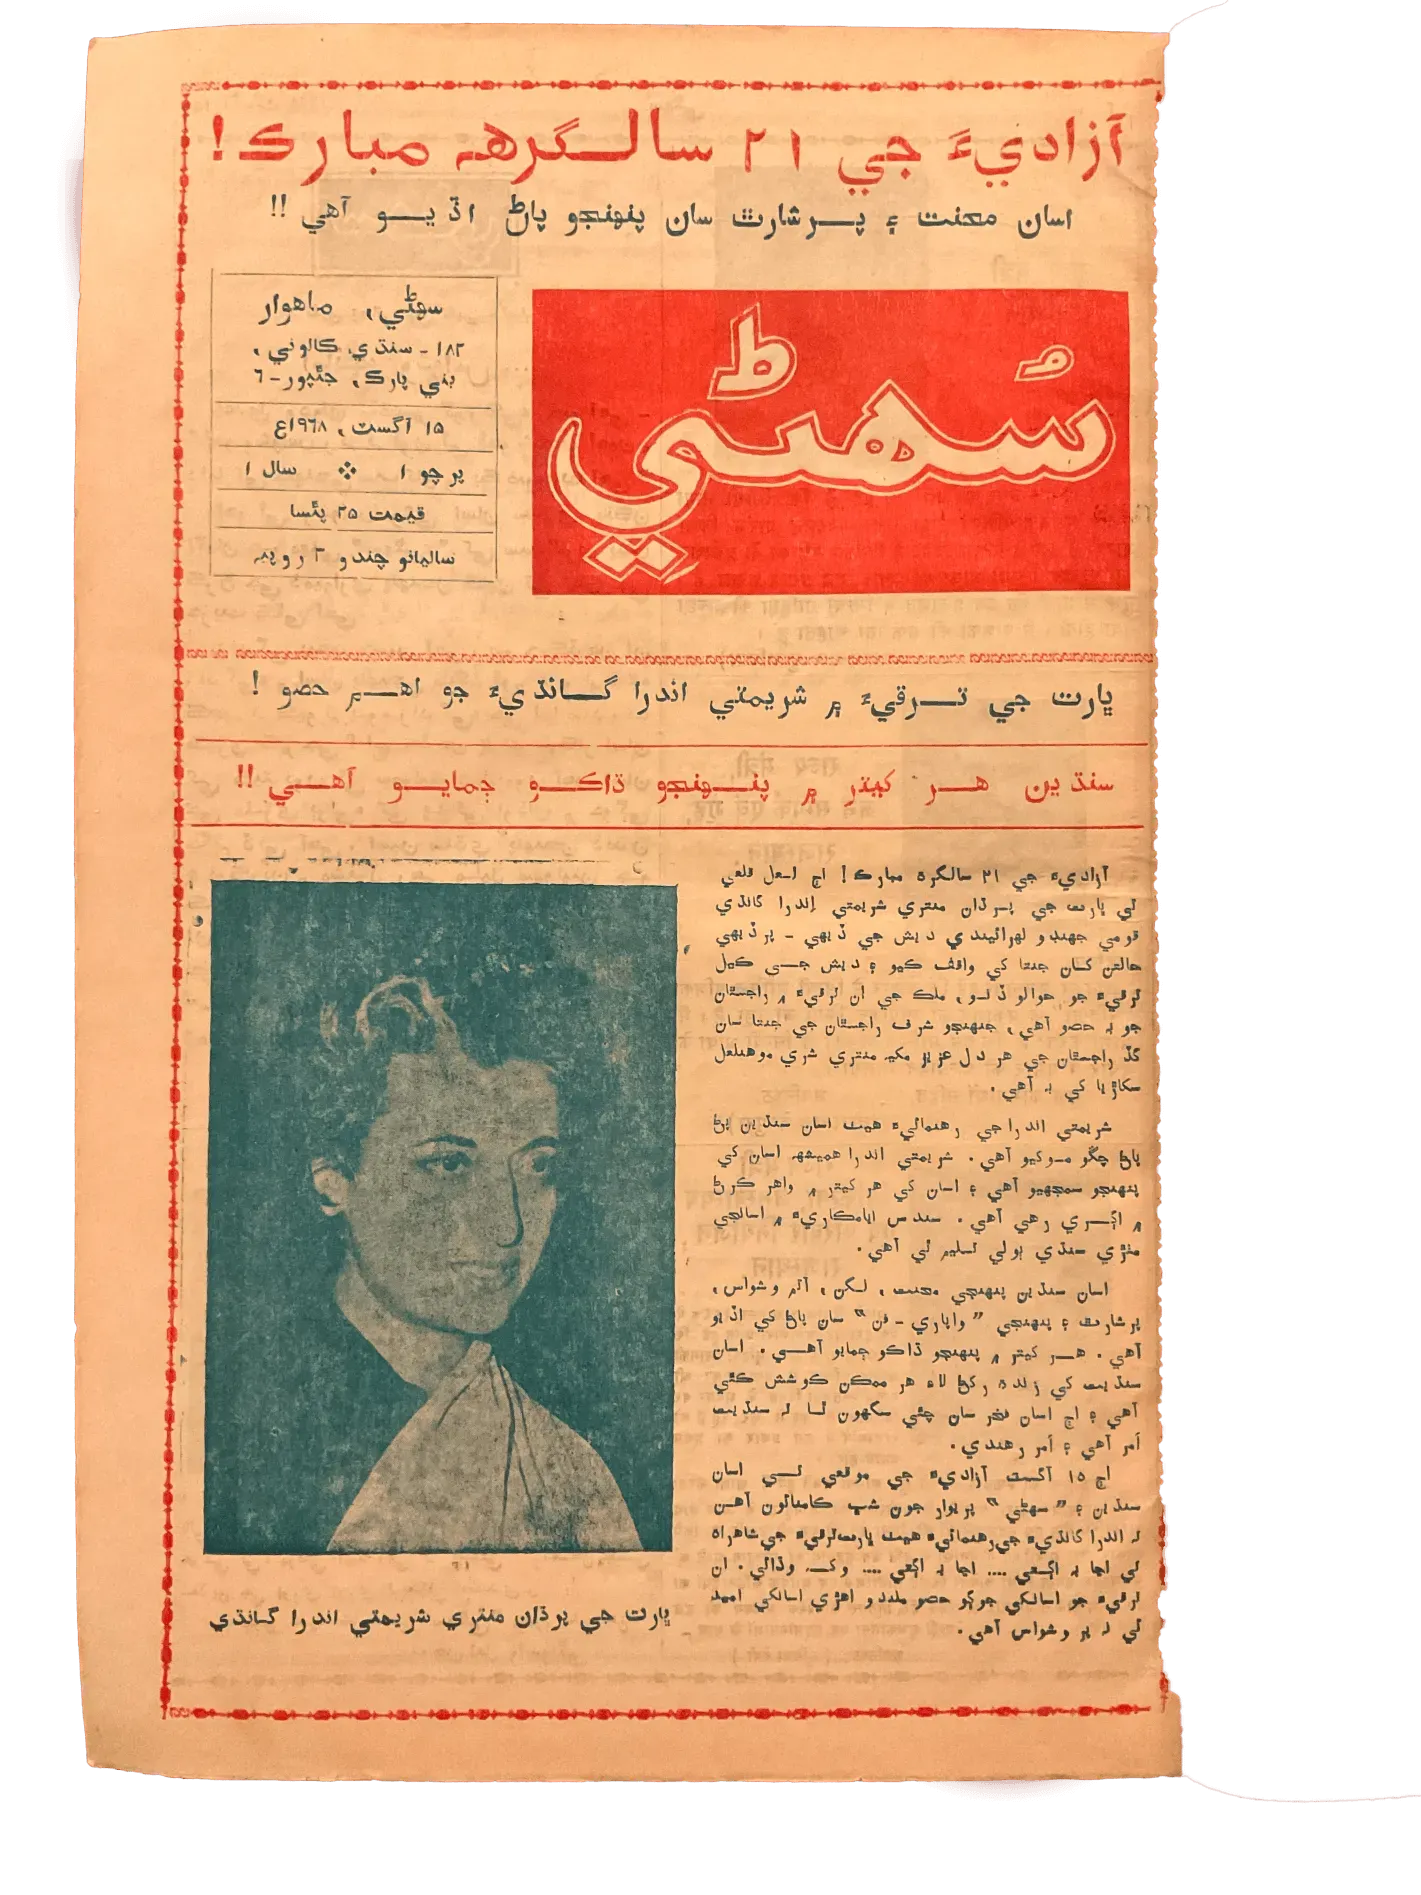 آزاديءَ جي ٢١ سالگرهه مبارڪ!
اسان محنت ۽ پرشارٿ سان پنهنجو پاڻ اڏيو آهي !!
سُهڻي
سهڻي، ماهوار
١٨٢ - سنڌي ڪالوني،
بني پارڪ، جئپور-٦
١٥ آگسٽ، ١٩٦٨ع
پرچو ١ سال ١
قيمت ٢٥ پئسا
ساليانو چندو ٣ روپيه
ڀارت جي ترقيءَ ۾ شريمتي اندرا گانڌيءَ جو اهم حصو !
سنڌين هر کيتر ۾ پنهنجو ڌاڪو ڄمايو آهي !!
آزاديءَ جي ٢١ سالگره مبارڪ! اڄ لعل قلعي
تي ڀارت جي پرڌان منتري شريمتي اندرا گانڌي
قومي جهنڊو لهرائيندي ديش جي ڏيهي - پرڏيهي
حالتن کان جنتا کي واقف ڪيو ۽ ديش جي ڪيل
ترقيءَ جو حوالو ڏنو، ملڪ جي ان ترقيءَ ۾ راجستان
جو به حصو آهي، جنهنجو شرف راجستان جي جنتا سان
گڏ راجستان جي هر دل عزيز مکيه منتري شري موهنلعل
سکاڙيا کي به آهي.
شريمتي اندرا جي رهنمائيءَ هيٺ اسان سنڌين پڻ
پاڻ چڱو موکيو آهي. شريمتي اندرا هميشهه اسان کي
پنهنجو سمجهيو آهي ۽ اسان کي هر کيتر ۾ واهر ڪرڻ
۾ اڳري رهي آهي. سندس ايامڪاريءَ ۾ اسانجي
مٺڙي سنڌي ٻولي تسليم ٿي آهي.
اسان سنڌين پنهنجي محنت، لگن، آتم وشواس،
پرشارٿ ۽ پنهنجي ”واپاري - فن“ سان پاڻ کي اڏيو
آهي. هر کيتر ۾ پنهنجو ڌاڪو ڄمايو آهي. اسان
سنڌيت کي زنده رکڻ لاءِ هر ممڪن ڪوشش ڪئي
آهي ۽ اڄ اسان فخر سان چئي سگهون ٿا ته سنڌيت
اَمر آهي ۽ اَمر رهندي.
اڄ ١٥ آگسٽ آزاديءَ جي موقعي تي اسان
سنڌين ۽ ”سهڻي“ پريوار جون شڀ ڪامنائون آهن
ته اندرا گانڌيءَ جي رهنمائيءَ هيٺ ڀارت ترقيءَ جي شاهراه
تي اڃا به اڳتي .... اڃا به اڳتي .... وک وڌائي. ان
ترقيءَ جو اسانکي جوڳو حصو ملندو اهڙي اسانکي اميد
ئي نه پر وشواس آهي.
ڀارت جي پرڌان منتري شريمتي اندرا گانڌي